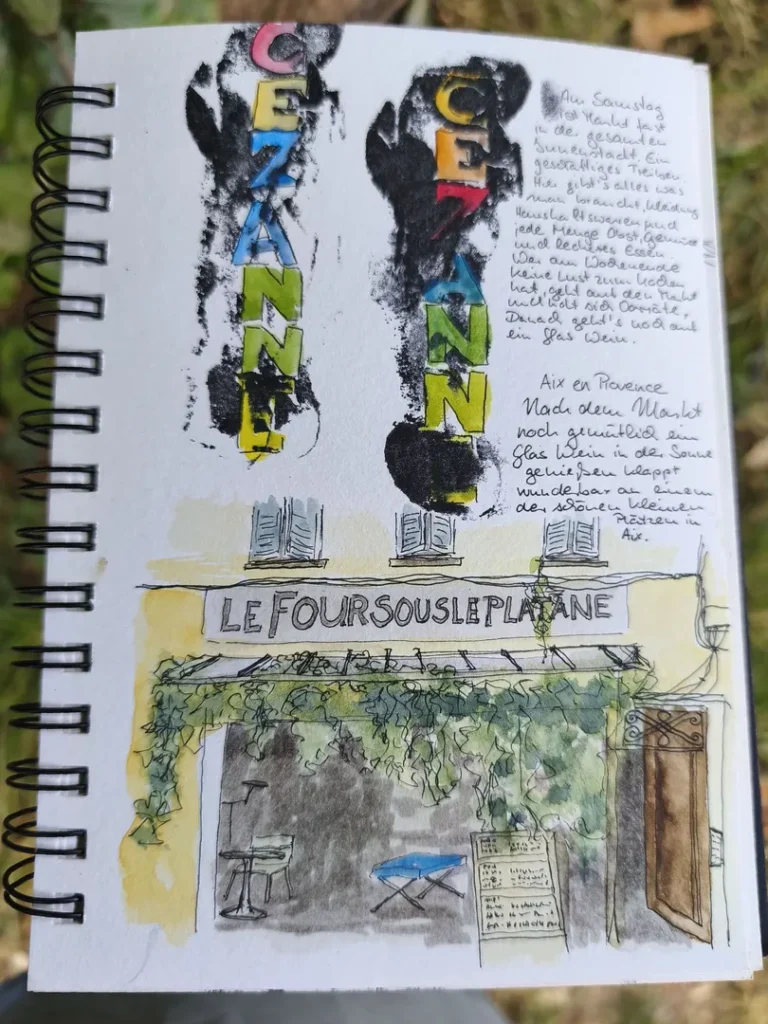 CEZANNE
CEZANNE
Am Samstag
ist Markt fast
in der gesamten
Innenstadt. Ein
geschäftiges Treiben.
Hier gibt's alles was
man braucht, Kleidung
Haushaltswaren und
jede Menge Obst, Gemüse
und leckeres Essen.
Wer am Wochenende
keine Lust zum Kochen
hat, geht auf den Markt
und holt sich Vorräte.
Danach geht's noch auf
ein Glas Wein.
Aix en Provence
Nach dem Markt
noch gemütlich ein
Glas Wein in der Sonne
genießen klappt
wunderbar an einem
der schönen kleinen
Plätzen in
Aix.
LE FOUR SOUS LE PLATANE